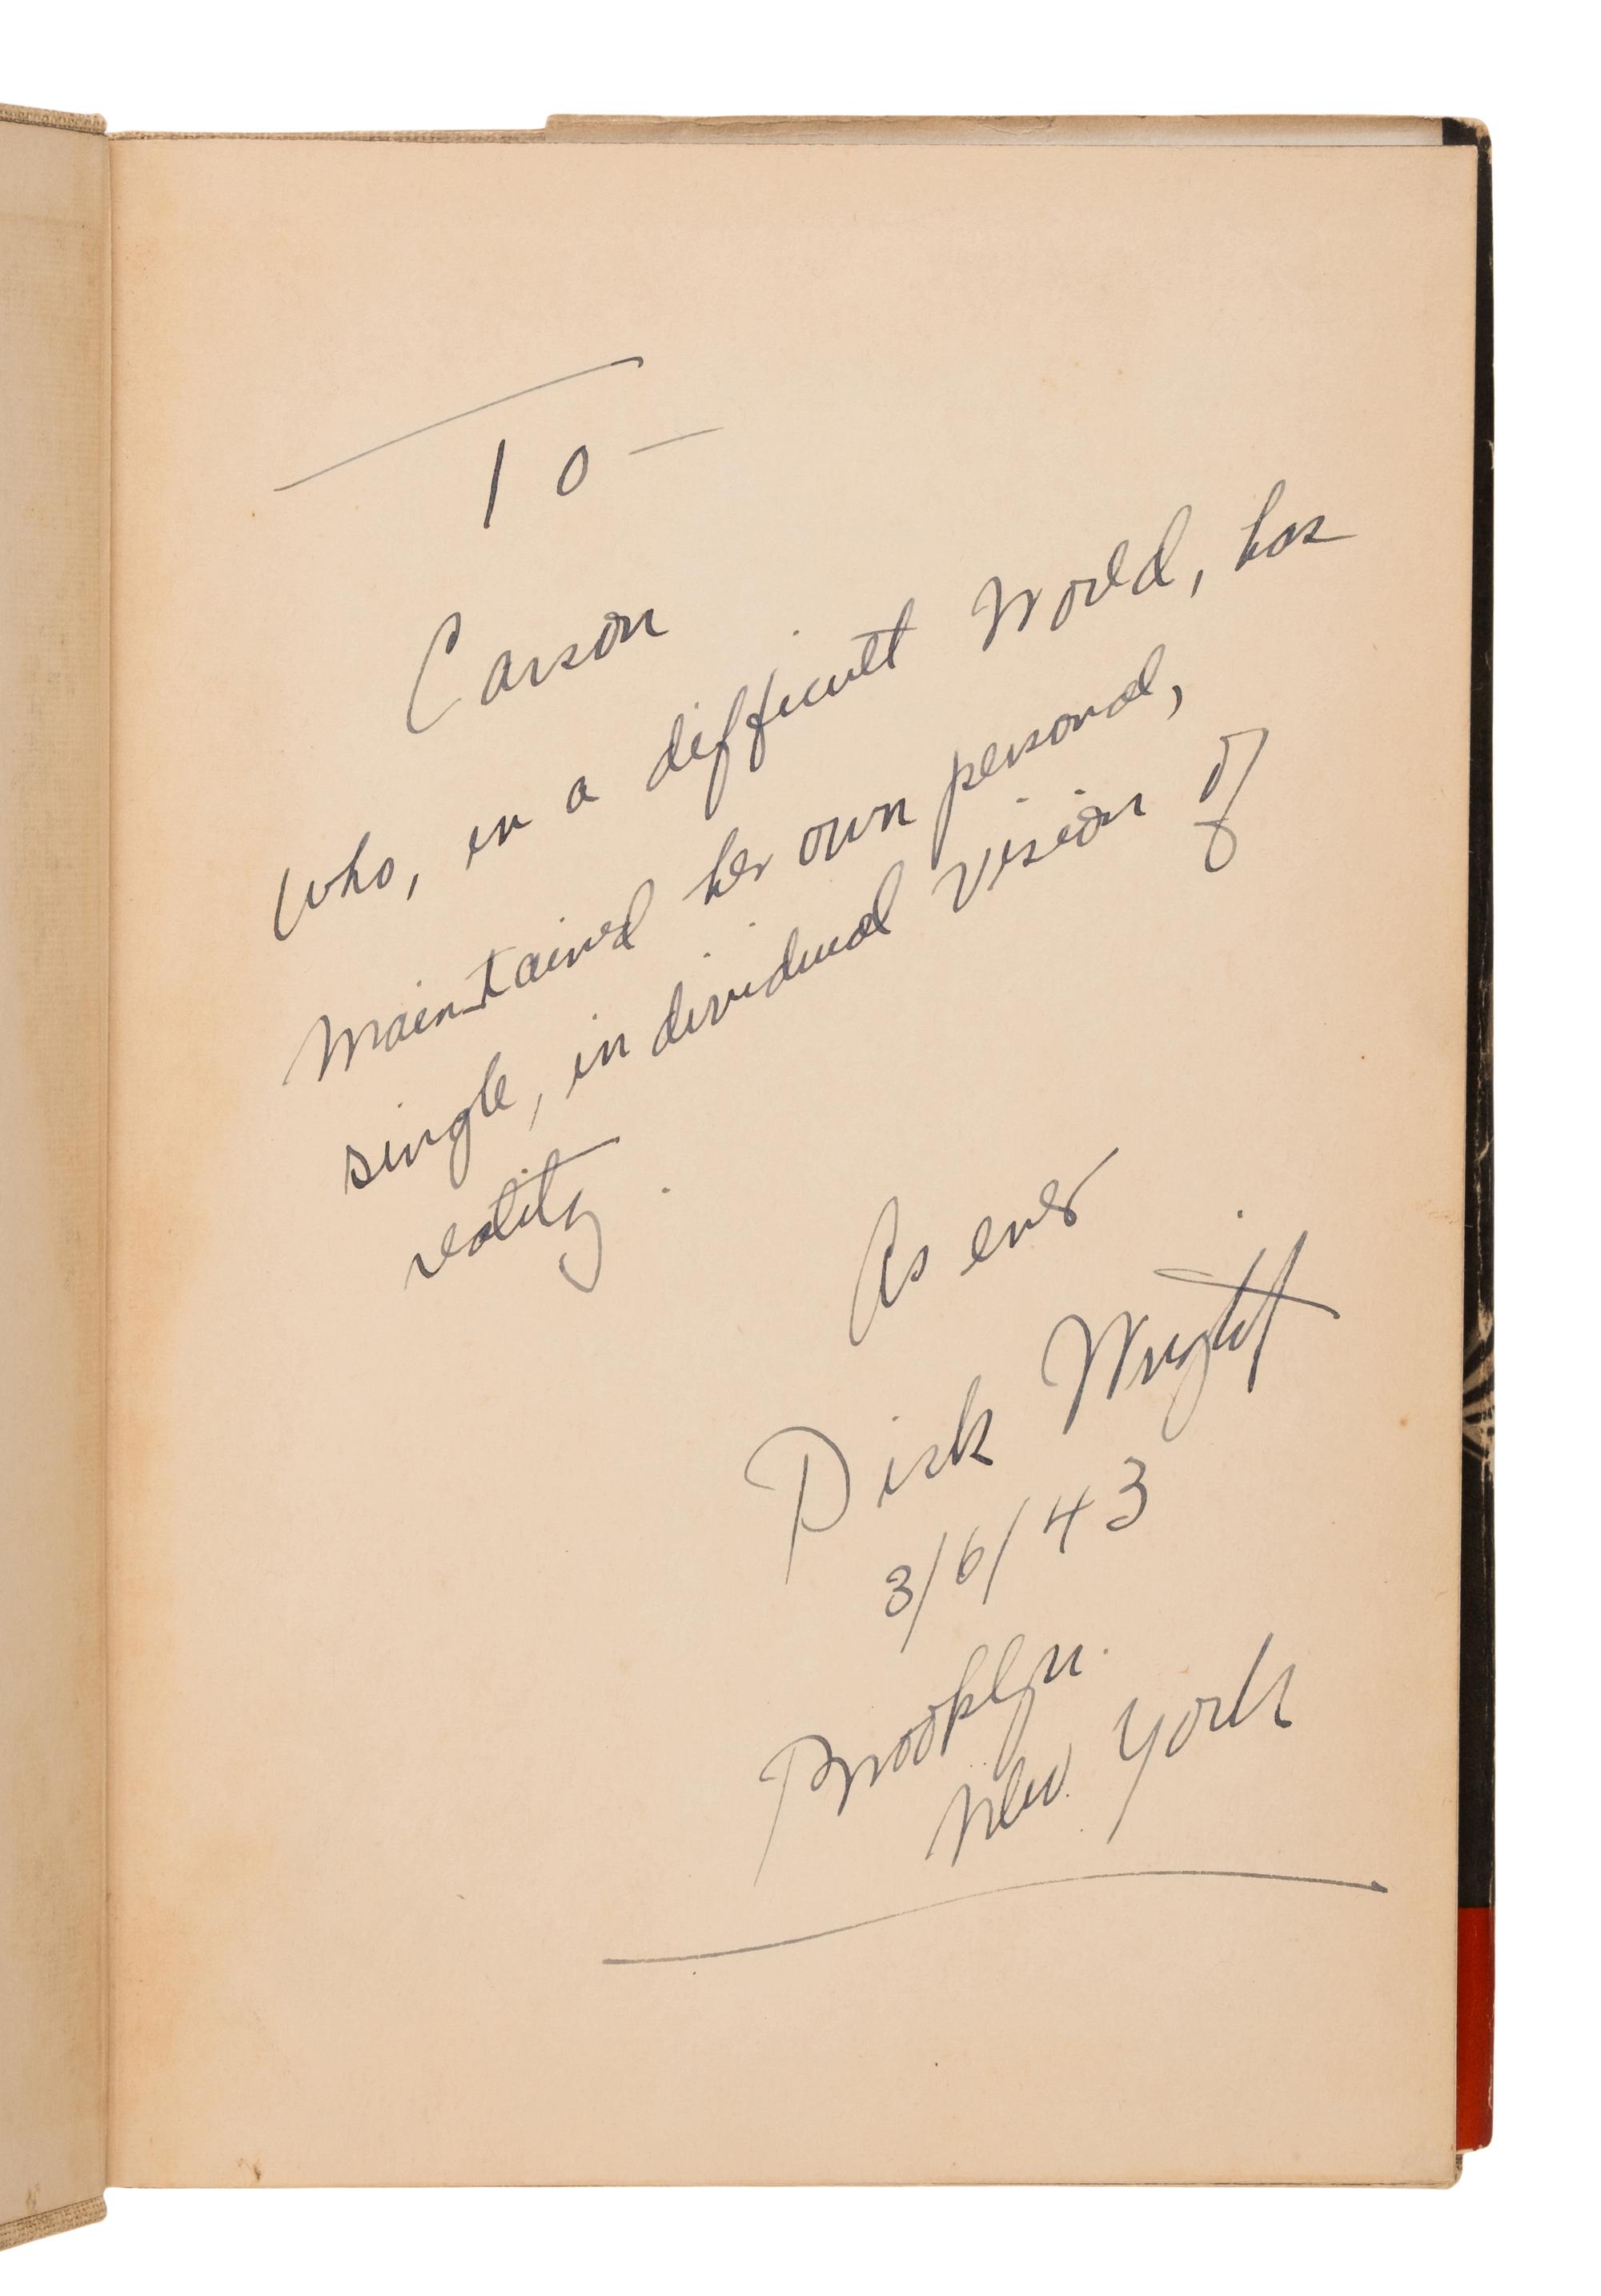 To —
Carson
who, in a difficult world, has
maintained her own personal,
single, individual vision of
reality.
As ever
Dick Wright
3/6/43
Brooklyn.
New York